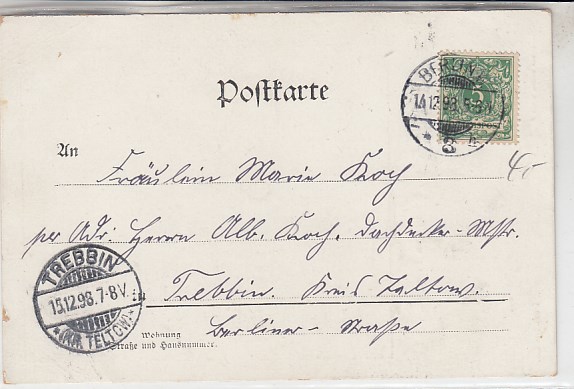 Postkarte
BERLIN
14.12.98.
3
5
An
Fräulein Marie Koch
4,-
per Adr. Herrn Alb. Koch, Dachdecker-Mstr
TREBBIN
15.12.98.7-8V.
*(KR. TELTOW)*
in Trebbin. Kreis Teltow.
Berliner-Straße
Wohnung
Straße und Hausnummer.